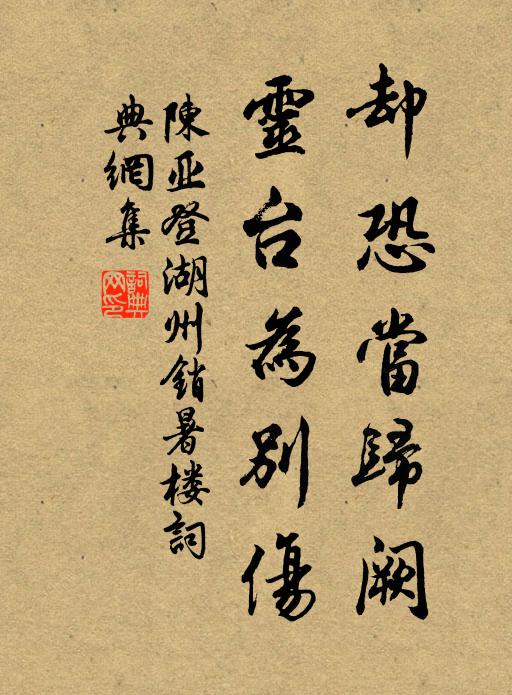 却恐當歸闕
靈台為別傷
陳亚登湖州銷暑楼詞
典網集
詞典网印